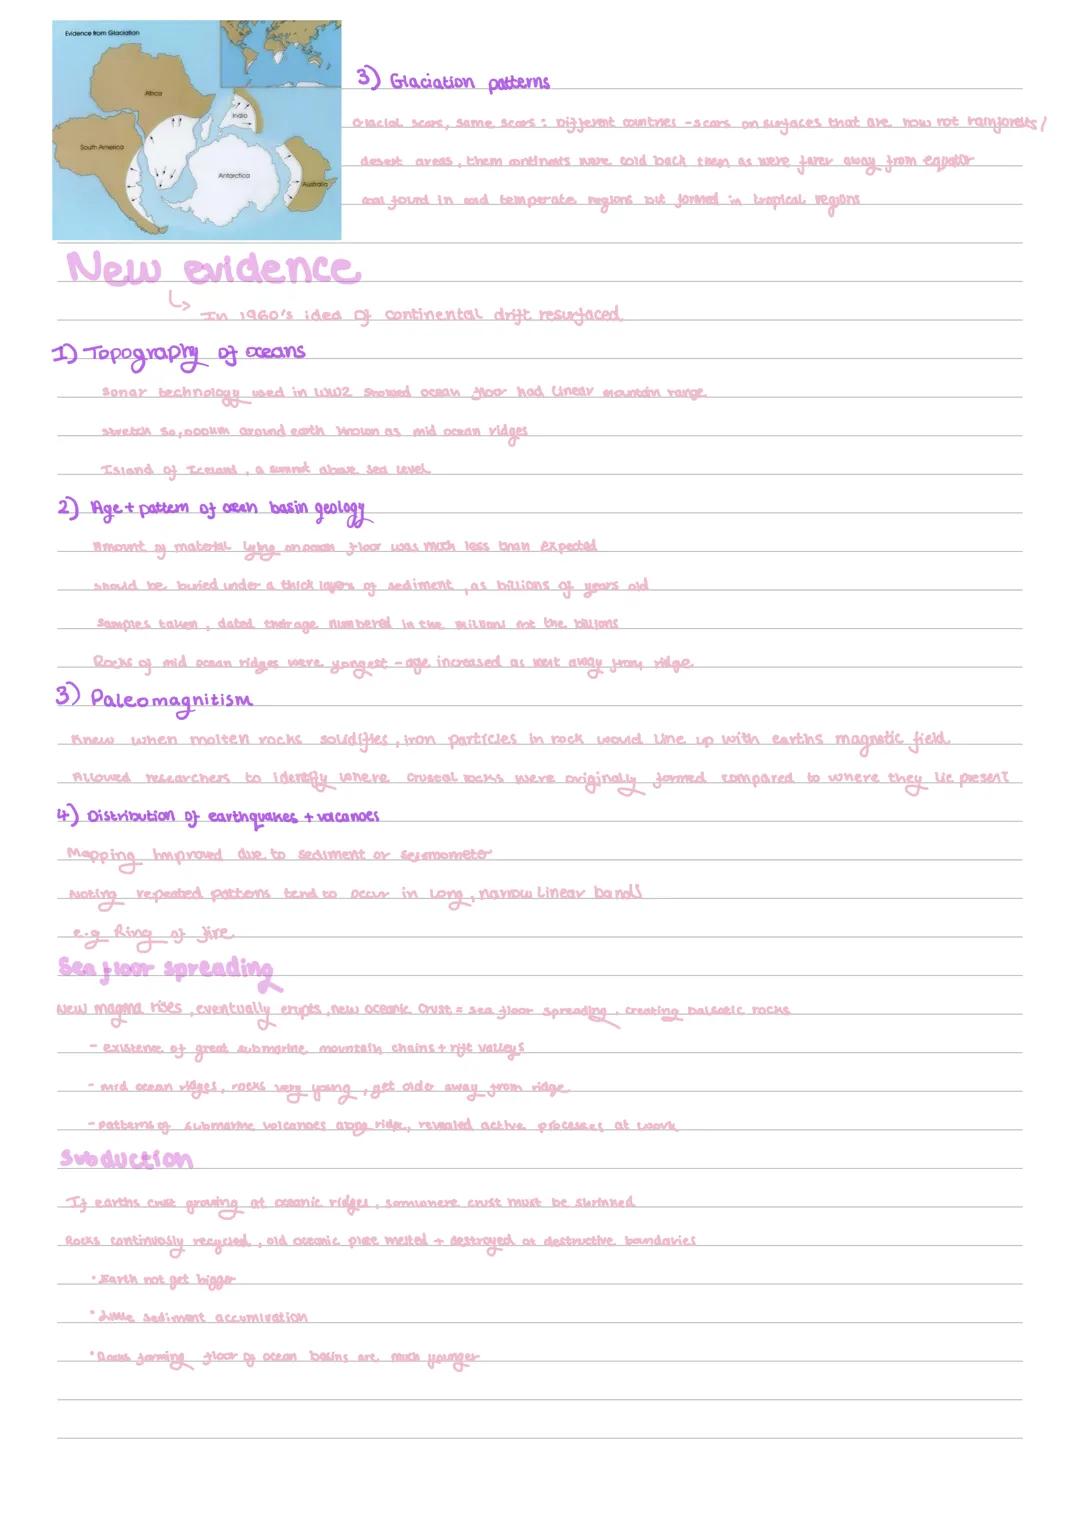 Evidence from Glaciation
Africa
India
South America
Antarctica
Australia
3) Glaciation patterns
Glacial scars, same scars : Different countries - scars on surfaces that are now hot rainforests /
desert areas, them continents were cold back then as were farer away from equator
coal found in and temperate regions but formed in tropical regions
New evidence
↳ In 1960's idea of continental drift resurfaced
1) Topography of oceans
Sonar technology used in WW2 showed ocean floor had linear mountain range
stretch 50,000km around earth known as mid ocean ridges
Island of Iceland, a summit above sea level
2) Age + pattern of ocean basin geology
Amount of material lying on ocean floor was much less than expected
should be buried under a thick layers of sediment, as billions of years old
samples taken, dated their age numbered in the millions not the billions
Rocks of mid ocean ridges were yongest - age increased as went away from ridge
3) Paleomagnitism
Knew when molten rocks solidifies, iron particles in rock would line up with earths magnetic field
Allowed researchers to identify where crustal rocks were originally formed compared to where they lie present
4) Distribution of earthquakes + volcanoes
Mapping improved due to sediment or seismometer
Noting repeated patterns tend to occur in long, narrow linear bands
e.g Ring of fire
Sea floor spreading
New magma rises, eventually erupts, new oceanic crust = sea floor spreading, creating balsatic rocks
- existence of great submarine mountain chains + rift valleys
- mid ocean ridges, rocks very young, get older away from ridge
- patterns of submarine volcanoes along ridge, revealed active processes at work
Subduction
If earths crust growing at oceanic ridges, somewhere crust must be
Rocks continuosly recycled, old oceanic plate melted + destroyed at destructive boundaries
• Earth not get bigger
• Little sediment accumlation
• Rocks forming floor of ocean basins are much younger